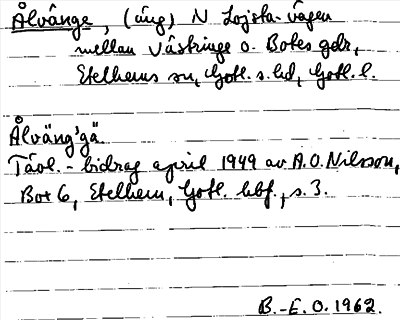 Ålvänge, (äng) N Lojsta-vägen
mellan Västringe o. Botes gdr,
Etelhems sn, Gotl. s. hd, Gotl. l.
Ålväng'gä.
Tävl.-bidrag april 1949 av A.O. Nilsson,
Box 6, Etelhem, Gotl. hbf., s. 3.
B.-E. O. 1962.